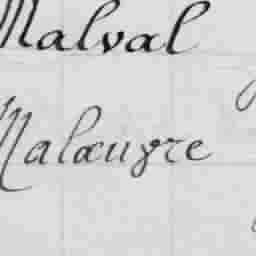 Malval
Malæuvre